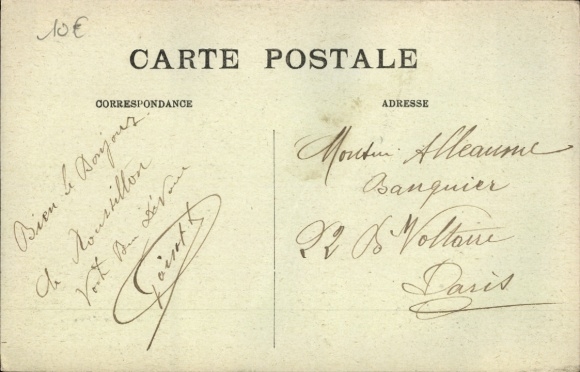 10€
CARTE POSTALE
CORRESPONDANCE
ADRESSE
Bien le Bonjour
de Roussillon
Votre Bien Dévoué
Monsieur Alleaume
Banquier
Bd Voltaire
Paris